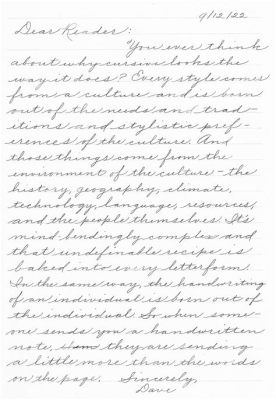 9/12/22
Dear Reader:
You ever think
about why cursive looks the
way it does? Every style comes
from a culture and is born
out of the needs and trad-
itions and stylistic pref-
erences of the culture. And
those things come from the
environment of the culture - the
history, geography, climate,
technology, language, resources,
and the people themselves. It's
mind-bendingly complex and
that undefinable recipe is
baked into every letterform.
In the same way, the handwriting
of an individual is born out of
the individual. So when some-
one sends you a handwritten
note, they are sending
a little more than the words
on the page. Sincerely,
Dave